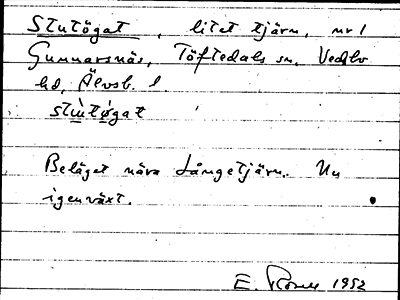 Stutögat, litet tjärn, nr 1
Gunnarsnäs, Töftedals sn, Vedbo
hd, Älvsb. l.
stùtø̀gat
Beläget nära Långetjärn. Nu
igenväxt.
E. 1952